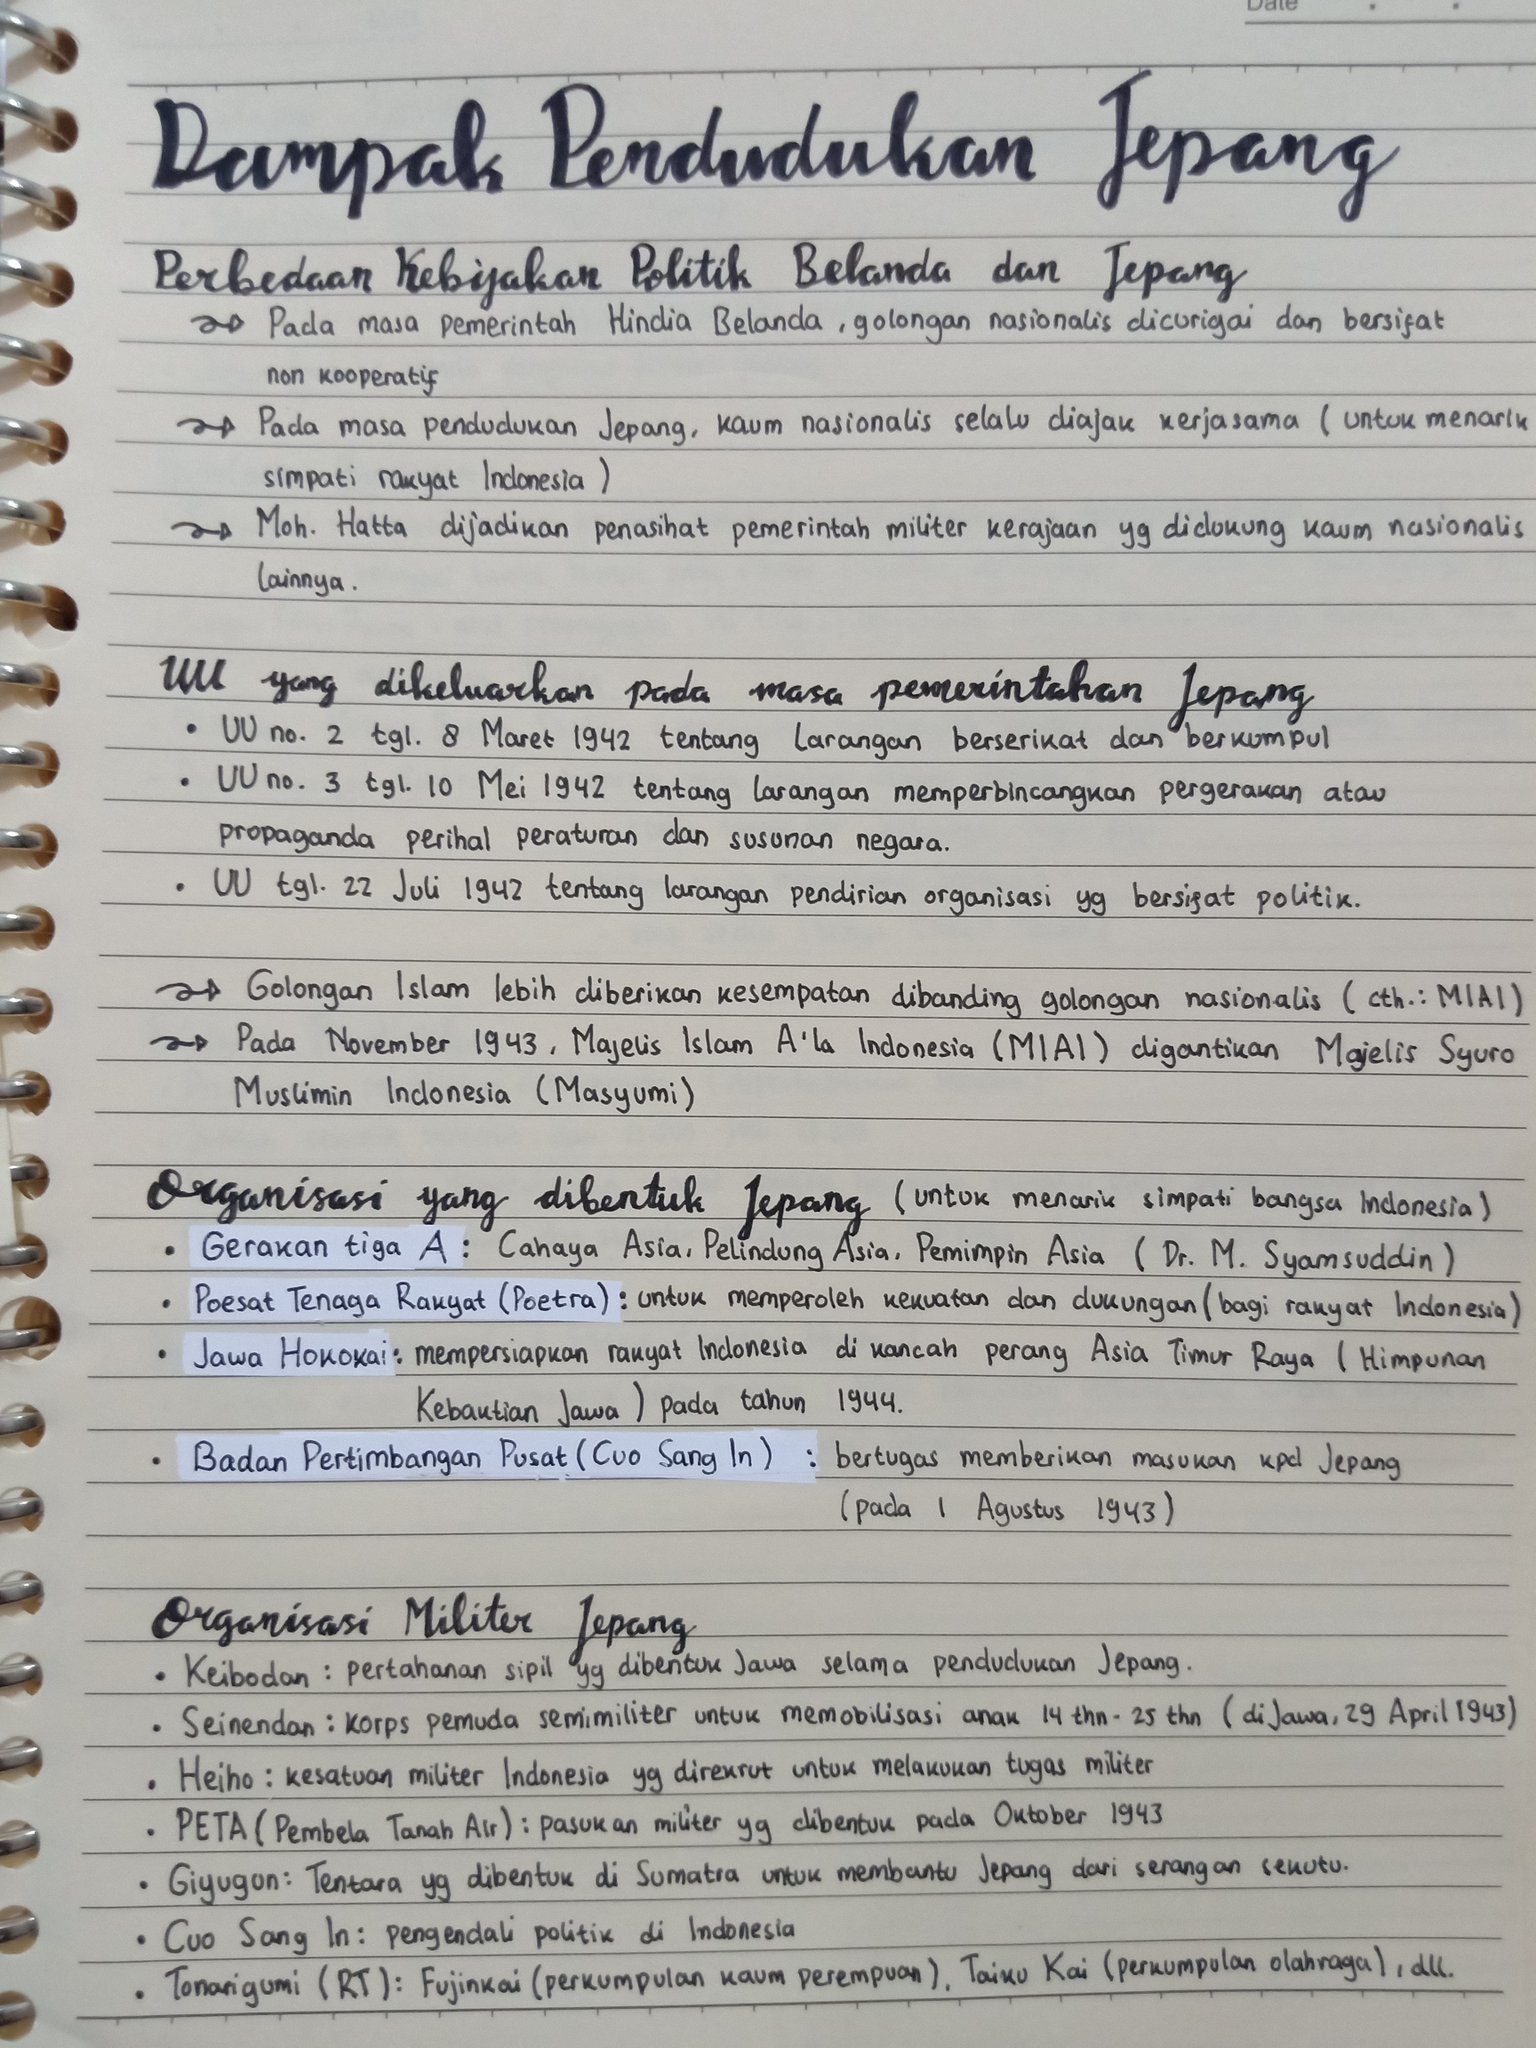 Date
Dampak Pendudukan Jepang
Perbedaan Kebijakan Politik Belanda dan Jepang
Pada masa pemerintah Hindia Belanda, golongan nasionalis dicurigai dan bersifat
non kooperatif
Pada masa pendudukan Jepang, kaum nasionalis selalu diajak kerjasama (untuk menarik
simpati rakyat Indonesia)
Moh. Hatta dijadikan penasihat pemerintah militer kerajaan yg didukung kaum nasionalis
lainnya.
UU yang dikeluarkan pada masa pemerintahan Jepang
• UU no. 2 tgl. 8 Maret 1942 tentang larangan berserikat dan berkumpul
• UU no. 3 tgl. 10 Mei 1942 tentang larangan memperbincangkan pergerakan atau
propaganda perihal peraturan dan susunan negara.
• UU tgl. 22 Juli 1942 tentang larangan pendirian organisasi yg bersifat politik.
Golongan Islam lebih diberikan kesempatan dibanding golongan nasionalis (cth.: MIAI)
Pada November 1943, Majelis Islam A'la Indonesia (MIAI) digantikan Majelis Syuro
Muslimin Indonesia (Masyumi)
Organisasi yang dibentuk Jepang (untuk menarik simpati bangsa Indonesia)
• Gerakan tiga A : Cahaya Asia, Pelindung Asia, Pemimpin Asia (Dr. M. Syamsuddin)
• Poesat Tenaga Rakyat (Poetra) : untuk memperoleh kekuatan dan dukungan (bagi rakyat Indonesia)
• Jawa Hokokai : mempersiapkan rakyat Indonesia di kancah perang Asia Timur Raya (Himpunan
Kebaktian Jawa) pada tahun 1944.
• Badan Pertimbangan Pusat (Cuo Sang In) : bertugas memberikan masukan kpd Jepang
(pada 1 Agustus 1943)
Organisasi Militer Jepang
• Keibodan : pertahanan sipil yg dibentuk Jawa selama pendudukan Jepang.
• Seinendan : korps pemuda semimiliter untuk memobilisasi anak 14 thn - 25 thn (di Jawa, 29 April 1943)
• Heiho : kesatuan militer Indonesia yg direkrut untuk melakukan tugas militer
• PETA (Pembela Tanah Air) : pasukan militer yg dibentuk pada Oktober 1943
• Giyugun : Tentara yg dibentuk di Sumatra untuk membantu Jepang dari serangan sekutu.
• Cuo Sang In : pengendali politik di Indonesia
• Tonarigumi (RT) : Fujinkai (perkumpulan kaum perempuan), Taiku Kai (perkumpulan olahraga), dll.